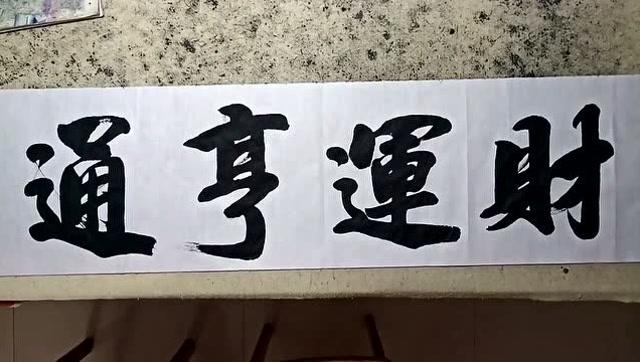 財運亨通